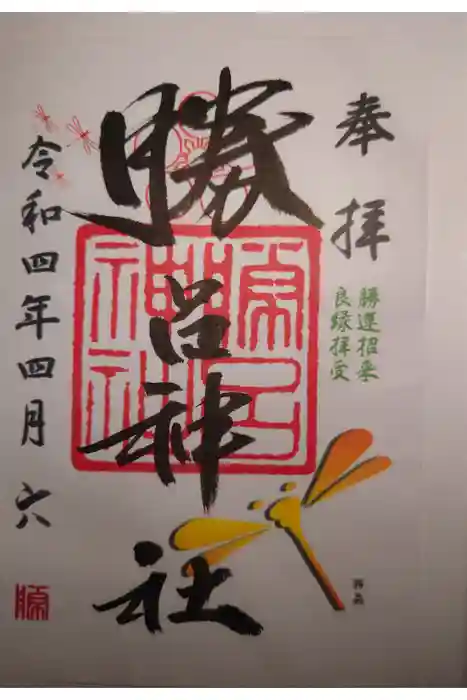 奉拝
勝運招来
良縁拝受
勝呂神社
令和四年四月六
勝